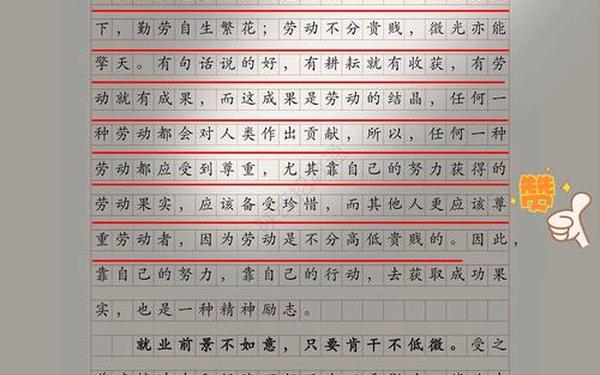 下，勤劳自生繁花；劳动不分贵贱，微光亦能
擎天。有句话说的好，有耕耘就有收获，有劳
动就有成果，而这成果是劳动的结晶，任何一
种劳动都会对人类作出贡献，所以，任何一种
劳动都应受到尊重，尤其靠自己的努力获得的
劳动果实，应该备受珍惜，而其他人更应该尊
重劳动者，因为劳动是不分高低贵贱的。因此，
靠自己的努力，靠自己的行动，去获取成功果
实，也是一种精神励志。
就业前景不如意，只要肯干不低微。受之
赞